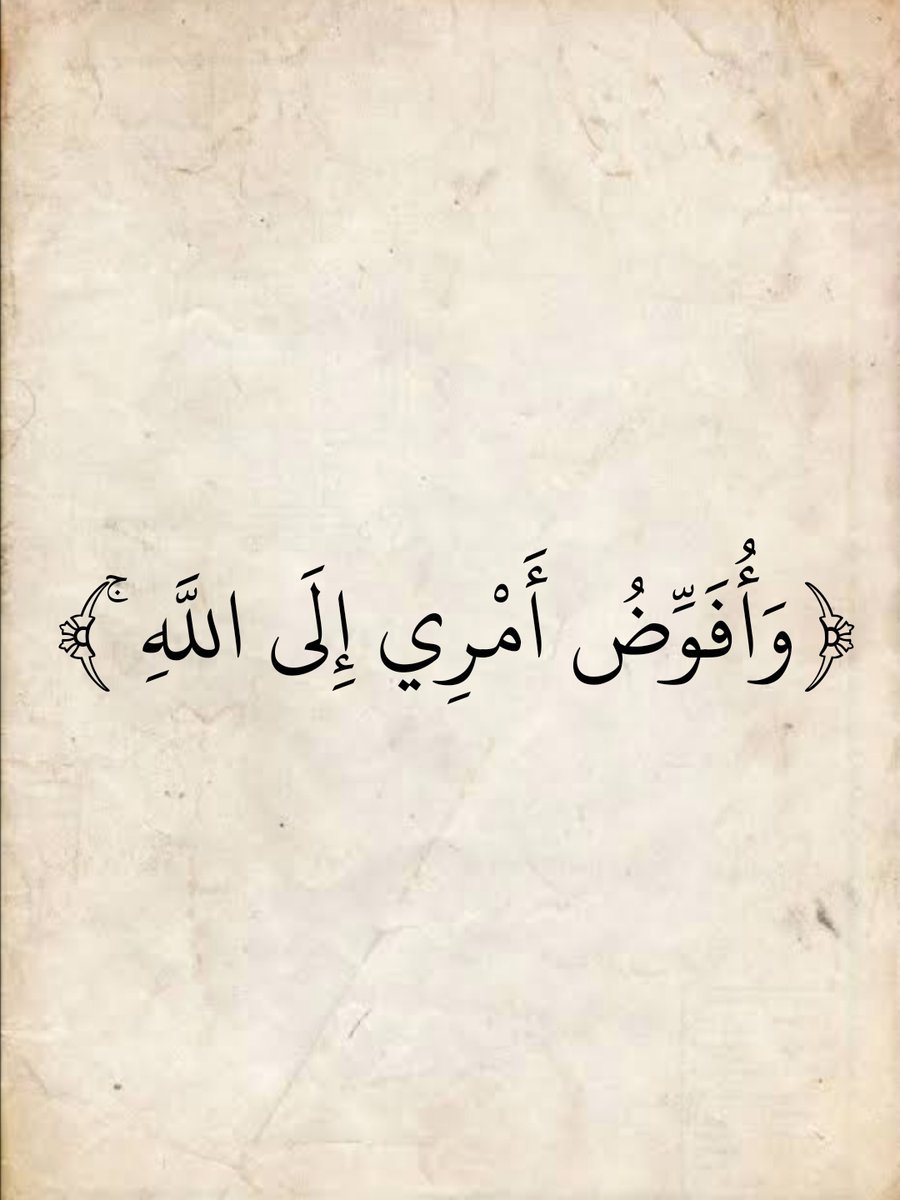 ﴿وَأُفَوِّضُ أَمْرِي إِلَى اللَّهِ ۚ﴾